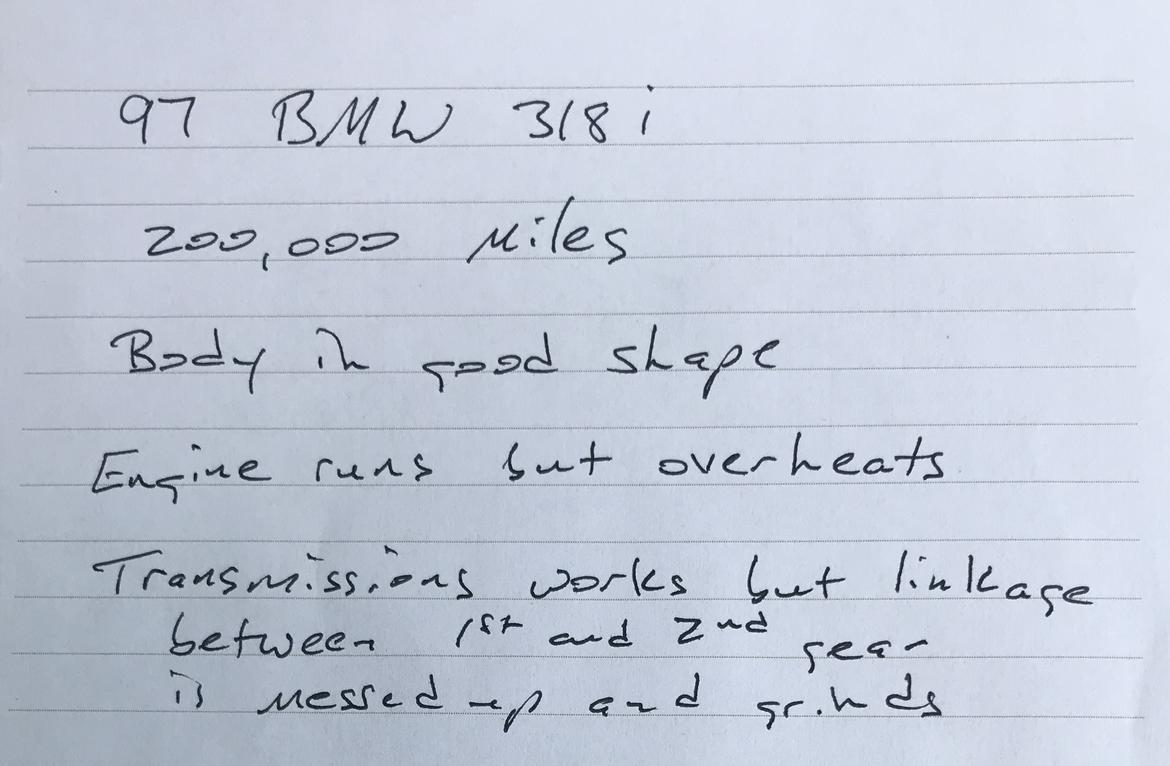 97 BMW 318i
200,000 Miles
Body in good shape
Engine runs but overheats
Transmissions works but linkage
between 1st and 2nd gear
is messed up and grinds